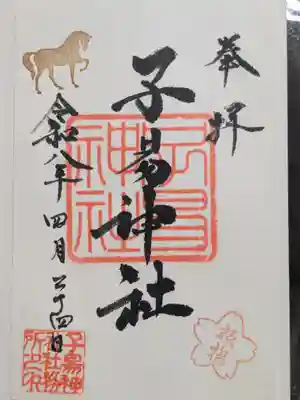 奉拝
子易神社
子易神社
令和八年 四月 二十四日
子易神社社務所之印